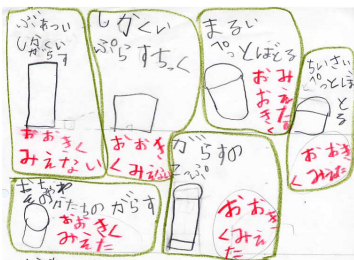 ぶあつい
しかくい
がらす
おおきく
みえない
しかくい
ぷらすちっく
おおき
くみえた
まるい
ぺっとぼとる
おおきく
みえた
ちいさい
ぺっとぼ
とる
おおき
くみえた
がらすの
こっぷ
おおき
くみえ
た
かたちの がらす
おおきく
みえた